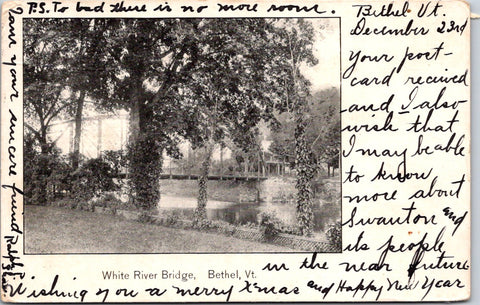 P.S. To bad there is no more room.
Bethel Vt.
December 23rd
Your post-
card received
and I also
wish that
I may be able
to know
more about
Swanton and
its people
in the near future
Wishing you a merry Xmas and Happy New Year
your sincere friend
White River Bridge, Bethel, Vt.